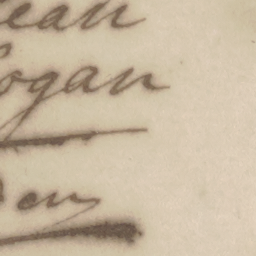 ean
ogan
en